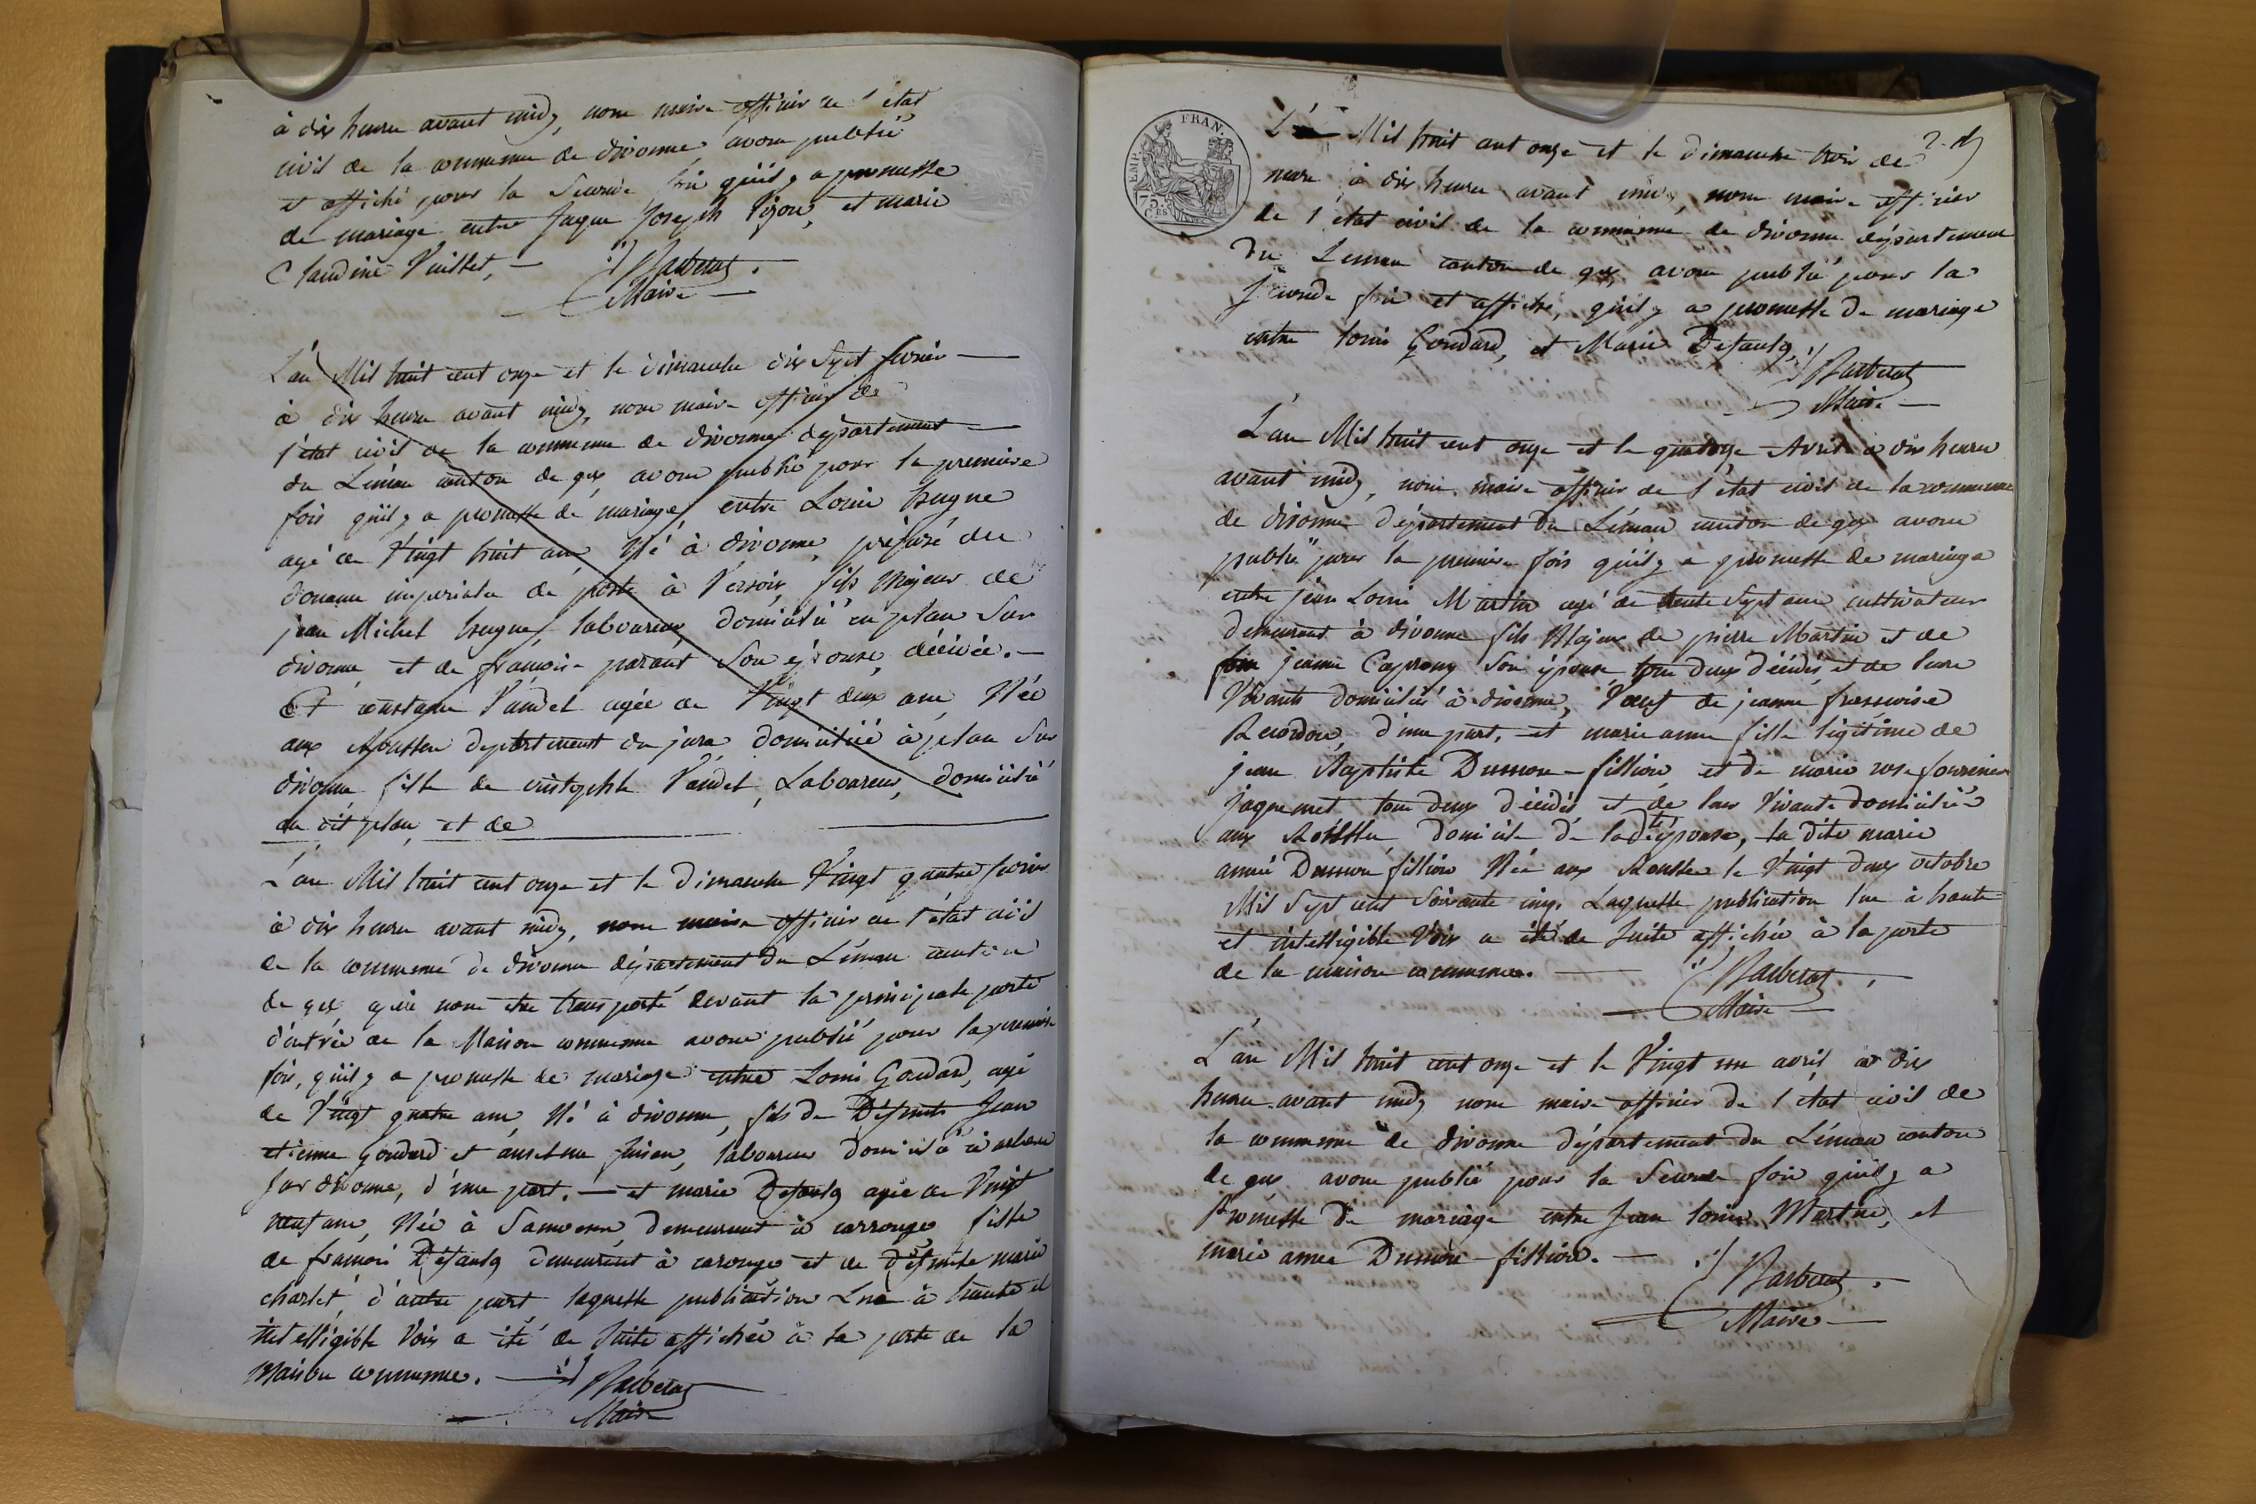 à dix heure avant midy, nous maire officier de l'état
civil de la commune de divonne, avons publié
et affiché pour la seconde fois qu'il y a promesse
de mariage entre Jaque Joseph et marie
Claudine Vuillet,
Maire
L'an Mil huit cent onze et le dimanche dix sept fevrier
à dix heure avant midy, nous maire officier de
l'état civil de la commune de divonne departement
du Léman canton de gex avons publié pour la premiere
fois qu'il y a promesse de mariage entre Louis hugue
agé de Vingt huit ans, Né à divonne, préposé des
douane imperiales de poste à Versoix, fils Majeur de
jean Michel hugue laboureur domicilié en plan Sur
divonne, et de françoise parant Son épouse, décédée.
Et constance Vandel agée de Vingt deux ans, Née
aux Rousses departement du jura domiciliée à plan Sur
divonne, fille de Vandel, Laboureur, domicilié
au dit plan, et de
L'an Mil huit cent onze et le Dimanche Vingt quatre fevrier
à dix heure avant midy, nous maire officier de l'état civil
de la commune de divonne département du Léman canton
de gex, après nous etre transporté devant la principale porte
d'entrée de la Maison commune avons publié pour la premiere
fois, qu'il y a promesse de mariage entre Louis Goudard, agé
de Vingt quatre ans, Né à divonne, fils de Défunts Jean
etienne Goudard et laboureur domicilié à arbere
Sur divonne, d'une part. et marie agée de Vingt
neuf ans, Née à Samoens, demeurant à carrouge fille
de françois demeurant à carouge et de Défunte marie
charlet, d'autre part laquelle publication Lue à haute et
intelligible Voix a été de Suite affichée à la porte de la
Maison commune.
Maire
FRAN.
EMP.
75
C.ES
L'an Mil huit cent onze et le dimanche trois de
mars à dix heure avant midy, nous maire officier
de l'état civil de la commune de divonne département
du Leman canton de gex avons publié pour la
seconde fois et affiché, qu'il y a promesse de mariage
entre Louis Goudard, et Marie
Maire
L'an Mil huit cent onze et le quatorze Avril à dix heure
avant midy, nous maire officier de l'état civil de la commune
de divonne département du Léman canton de gex avons
publié pour la premiere fois qu'il y a promesse de mariage
entre jean Louis Martin agé de trente Sept ans cultivateur
demeurant à divonne fils Majeur de pierre Martin et de
jeanne Son épouse tous deux décédés, et de leurs
Vivants domiciliés à divonne, Veuf de jeanne
Recordon, d'une part, et marie anne fille légitime de
jean Baptiste et de marie rose
jaquemet tous deux décédés et de leur Vivants domiciliés
aux Rousses, domicile de la dte épouse, la dite marie
anne Née aux Rousses le Vingt deux octobre
Mil Sept cent Soixante cinq. Laquelle publication lue à haute
et intelligible Voix a été de Suite affichée à la porte
de la maison commune.
Maire
L'an Mil huit cent onze et le Vingt un avril à dix
heure avant midy nous maire officier de l'état civil de
la commune de divonne département du Léman canton
de gex avons publié pour la Seconde fois qu'il y a
Promesse de mariage entre Jean Louis Martin, et
marie anne
Maire